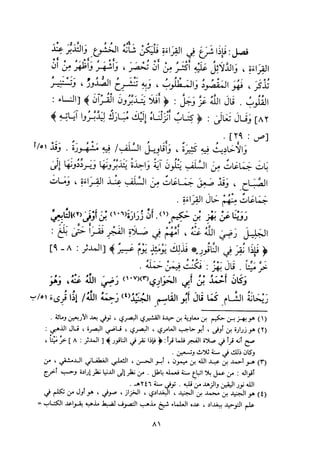 فصل: فَإِذَا شَرَعَ فِي القِرَاءَةِ فَلْيَكُنْ شَأْنُهُ الخُشُوعَ وَالتَّدَبُّرَ عِنْدَ
القِرَاءَةِ ، وَالدَّلَائِلُ عَلَيْهِ أَكْثَرُ مِنْ أَنْ تُحْصَرَ ، وَأَشْهَرُ وَأَظْهَرُ مِنْ أَنْ
تُذْكَرَ ، فَهُوَ المَقْصُودُ وَالمَطْلُوبُ ، وَبِهِ تَنْشَرِحُ الصُّدُورُ ، وَتَسْتَنِيرُ
القُلُوبُ . قَالَ اللَّهُ عَزَّ وَجَلَّ : ﴿ أَفَلَا يَتَدَبَّرُونَ القُرْآنَ ﴾ [النساء :
٨٢] وَقَالَ تَعَالَى : ﴿ كِتَابٌ أَنْزَلْنَاهُ إِلَيْكَ مُبَارَكٌ لِيَدَّبَّرُوا آيَاتِهِ ﴾
[ص : ٢٩] .
وَالأَحَادِيثُ فِيهِ كَثِيرَةٌ ، وَأَقَاوِيلُ السَّلَفِ/ فِيهِ مَشْهُورَةٌ . وَقَدْ ٥١/أ
بَاتَ جَمَاعَاتٌ مِنَ السَّلَفِ يَتْلُونَ آيَةً وَاحِدَةً يَتَدَبَّرُونَهَا وَيُرَدِّدُونَهَا إِلَى
الصَّبَاحِ ، وَقَدْ صَعِقَ جَمَاعَاتٌ مِنَ السَّلَفِ عِنْدَ القِرَاءَةِ ، وَمَاتَ
جَمَاعَاتٌ مِنْهُمْ حَالَ القِرَاءَةِ .
رَوَيْنَا عَنْ بَهْزِ بْنِ حَكِيمٍ(١)، أَنَّ زُرَارَةَ(١٠٦) بْنَ أَوْفَى(٢)التَّابِعِيَّ
الجَلِيلَ رَضِيَ اللَّهُ عَنْهُ ، أَمَّهُمْ فِي صَلَاةِ الفَجْرِ فَقَرَأَ حَتَّى بَلَغَ :
﴿ فَإِذَا نُقِرَ فِي النَّاقُورِ ۞ فَذَلِكَ يَوْمَئِذٍ يَوْمٌ عَسِيرٌ ﴾ [المدثر : ٨ - ٩]
خَرَّ مَيِّتاً . قَالَ بَهْزٌ : فَكُنْتُ فِيمَنْ حَمَلَهُ .
وَكَانَ أَحْمَدُ بْنُ أَبِي الحَوَارِيِّ(٣)(١٠٧) رَضِيَ اللَّهُ عَنْهُ، وَهُوَ
رَيْحَانَةُ الشَّامِ كَمَا قَالَ أَبُو القَاسِمِ الجُنَيْدُ(٤) رَحِمَهُ اللَّهُ/ إِذَا قُرِئَ ٥١/ب
(١) هو بهز بن حكيم بن معاوية بن حيدة القشيري البصري ، توفي بعد الأربعين ومائة .
(٢) هو زرارة بن أوفى ، أبو حاجب العامري ، البصري ، قاضي البصرة ، قال الذهبي :
صح أنه قرأ في صلاة الفجر فلما قرأ : ﴿ فإذا نقر في الناقور ﴾ [ المدثر : ٨ ] خَرَّ مَيِّتاً ،
وكان ذلك في سنة ثلاث وتسعين .
(٣) هو أحمد بن عبد الله بن ميمون ، أبو الحسن ، الثعلبي الغطفاني الدمشقي ، من
أقواله : من عمل بلا اتباع سنة فعمله باطل . من نظر إلى الدنيا نظر إرادة وحب أخرج
الله نور اليقين والزهد من قلبه . توفي سنة ٢٤٦هـ .
(٤) هو الجنيد بن محمد بن الجنيد ، البغدادي ، الخزاز ، صوفي ، هو أول من تكلم في
علم التوحيد ببغداد ، عده العلماء شيخ مذهب التصوف لضبط مذهبه بقواعد الكتاب =
٨١